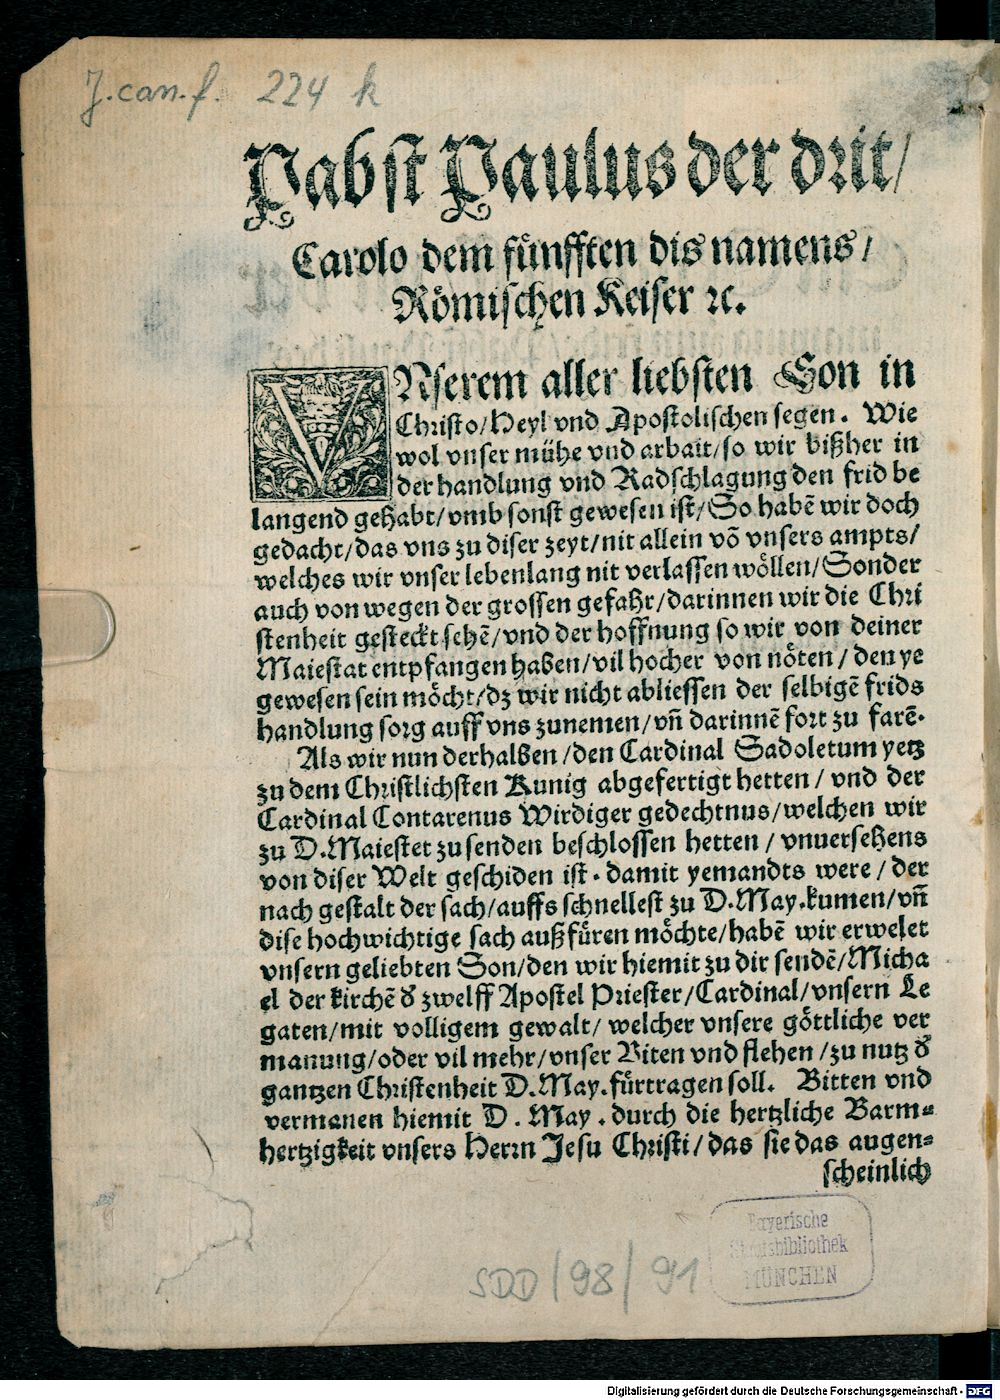 J.can.f. 224 k
Pabst Paulus der drit/
Carolo dem fünfften dis namens/
Römischen Keiser ꝛc.
VNserem aller liebsten Son in
Christo/Heyl vnd Apostolischen segen. Wie
wol vnser mühe vnd arbait/so wir bißher in
der handlung vnd Radschlagung den frid be
langend gehabt/vmb sonst gewesen ist/So habē wir doch
gedacht/das vns zu diser zeyt/nit allein vō vnsers ampts/
welches wir vnser lebenlang nit verlassen wöllen/Sonder
auch von wegen der grossen gefahr/darinnen wir die Chri
stenheit gesteckt sehē/vnd der hoffnung so wir von deiner
Maiestat entpfangen haben/vil hocher von nöten/den ye
gewesen sein möcht/dz wir nicht abliessen der selbigē frids
handlung sorg auff vns zunemen/vñ darinnē fort zu farē.
Als wir nun derhalben/den Cardinal Sadoletum yetz
zu dem Christlichsten Kunig abgefertigt hetten/vnd der
Cardinal Contarenus Wirdiger gedechtnus/welchen wir
zu D.Maiestet zu senden beschlossen hetten/vnuersehens
von diser Welt geschiden ist. damit yemandts were/der
nach gestalt der sach/auffs schnellest zu D.May.kumen/vñ
dise hochwichtige sach außfüren möchte/habē wir erwelet
vnsern geliebten Son/den wir hiemit zu dir sendē/Micha
el der kirchē đ zwelff Apostel Priester/Cardinal/vnsern Le
gaten/mit volligem gewalt/welcher vnsere göttliche ver
manung/oder vil mehr/vnser Biten vnd flehen/zu nutz đ
gantzen Christenheit D.May.fürtragen soll. Bitten vnd
vermanen hiemit D. May. durch die hertzliche Barm=
hertzigkeit vnsers Herrn Jesu Christi/das sie das augen=
scheinlich
Bayerische
Staatsbibliothek
MÜNCHEN
SDD/98/91
Digitalisierung gefördert durch die Deutsche Forschungsgemeinschaft - DFG